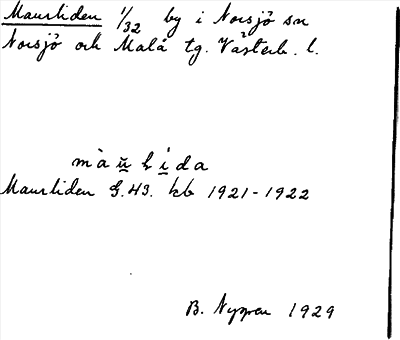 Maurliden 1/32 by i Norsjö sn
Norsjö och Malå tg. Västerb. l.
màu̯ḷi̱da
Maurliden G.43. kb 1921-1922
B. Nygren 1929